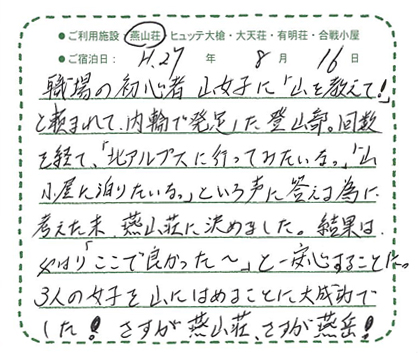 ●ご利用施設・燕山荘・ヒュッテ大槍・大天荘・有明荘・合戦小屋
●ご宿泊日： H.27 年 8 月 16 日
職場の初心者 山女子に「山を教えて!」
と頼まれて、内輪で発足した登山部。回数
を経て、「北アルプスに行ってみたいなっ」「山
小屋に泊りたいなっ」という声に答える為に
考えた末、燕山荘に決めました。結果は、
やはり「ここで良かった〜」と一安心することに。
3人の女子を山にはめることに大成功で
した! さすが燕山荘、さすが燕岳!